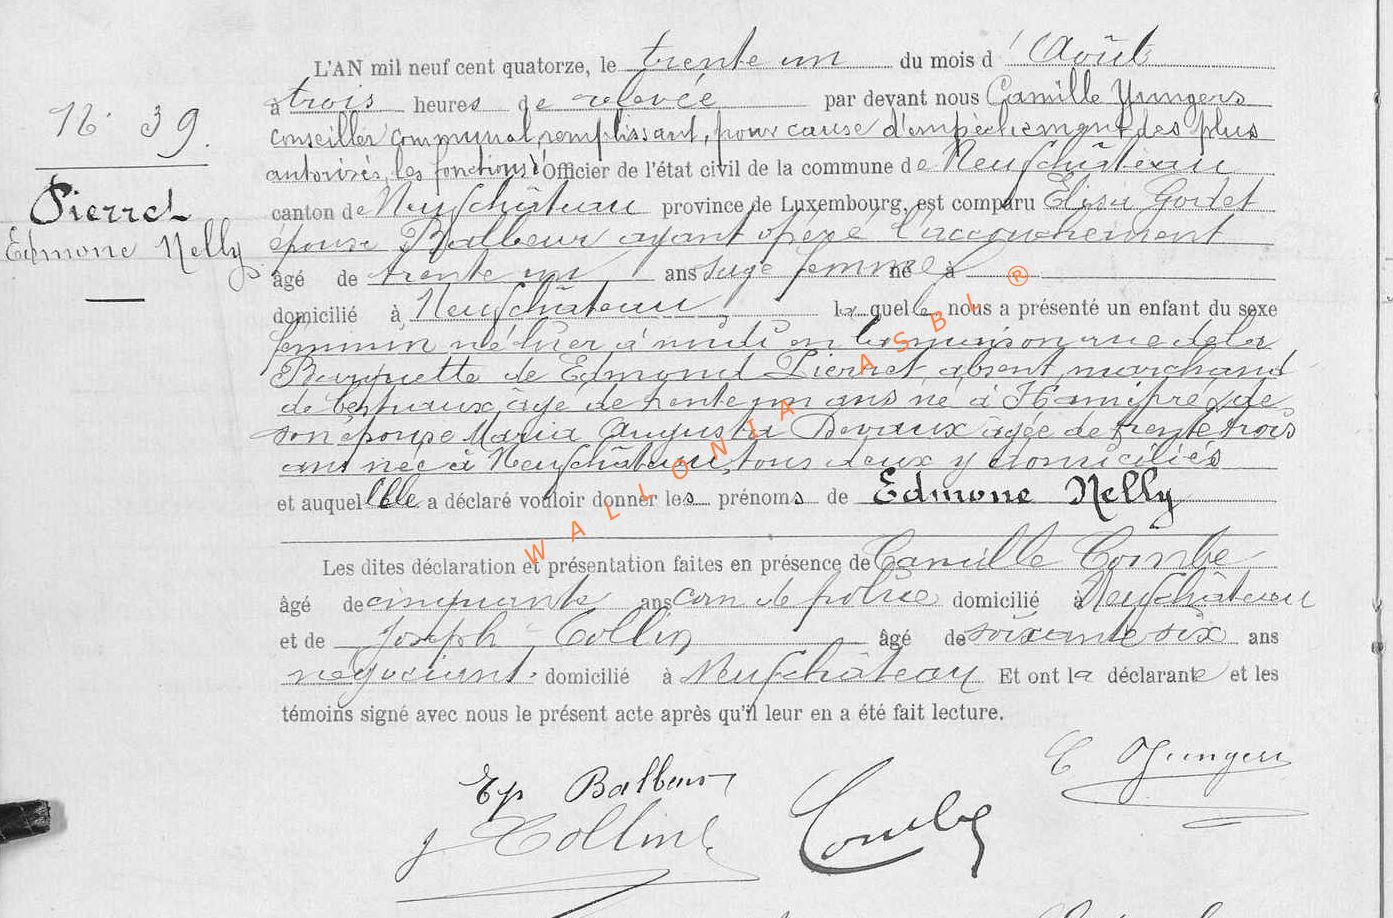 L'AN mil neuf cent quatorze, le trente un du mois d'Août
à trois heures de relevée par devant nous Camille Yungers
conseiller communal, remplissant, pour cause d'empèchement des plus
autorisés, les fonctions d'Officier de l'état civil de la commune de Neufchâteau
N° 39.
Pierret
Edmone Nelly
canton de Neufchâteau province de Luxembourg, est comparu Elisa Godet
épouse Balbeur ayant opéré l'accouchement
âgé de trente un ans sage femme né à
domicilié à Neufchâteau laquelle nous a présenté un enfant du sexe
féminin né hier à midi en la maison rue de la
Banquette de Edmond Pierret, absent, marchand
de bestiaux, âgé de trente un ans né à Hamipré & de
son épouse Maria Augusta Devaux âgée de trente trois
ans née à Neufchâteau, tous deux y domiciliés
et auquel elle a déclaré vouloir donner les prénoms de Edmone Nelly
Les dites déclaration et présentation faites en présence de Camille Combe
âgé de cinquante ans com de police domicilié à Neufchâteau
et de Joseph Collin âgé de soixante six ans
négociant. domicilié à Neufchâteau Et ont la déclarante et les
témoins signé avec nous le présent acte après qu'il leur en a été fait lecture.
C Yungers
Ep Balbeur
J Collin
Combe
WALLONIA ASBL ®